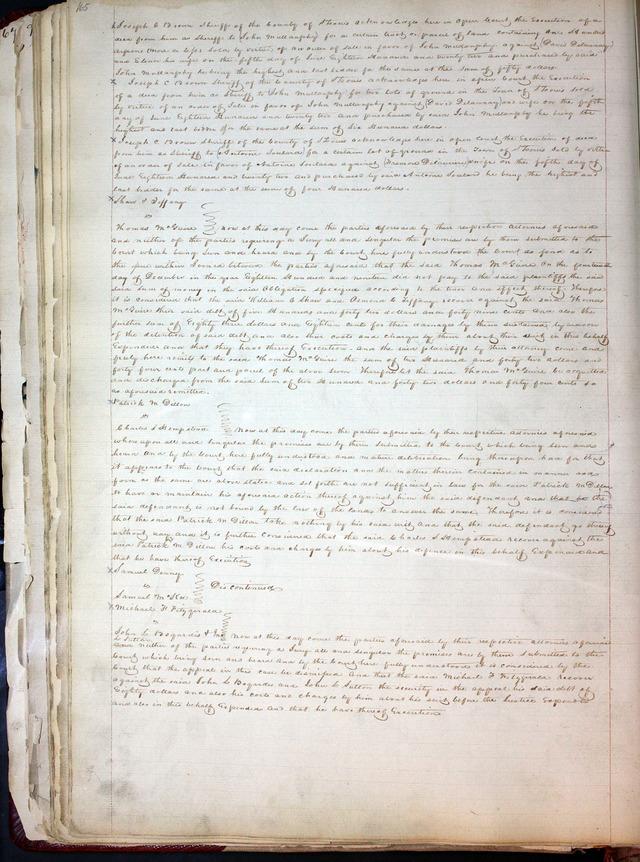 165
Joseph C Brown Sheriff of the County of St Louis acknowledges here in open Court, the Execution of a
deed from him as Sheriff to John Mullanphy for a certain tract or parcel of land containing one Hundred
Arpens more or less sold by virtue of an order of sale in favor of John Mullanphy against David Delaunay
and his wife on the fifth day of June Eighteen Hundred and twenty two and purchased by said
John Mullanphy he being the highest and last bidder for the same at the sum of fifty dollars
Joseph C Brown Sheriff of the County of St Louis acknowledges here in open Court the Execution
of a deed from him as Sheriff to John Mullanphy for two lots of ground in the Town of St Louis sold
by virtue of an order of sale in favor of John Mullanphy against David Delaunay and wife on the fifth
day of June Eighteen Hundred and twenty two and purchased by said John Mullanphy he being the
highest and last bidder for the same at the sum of Six Hundred dollars.
Joseph C Brown Sheriff of the County of St Louis acknowledges here in open Court the Execution of deed
from him as Sheriff to Antoine Soulard for a certain lot of ground in the Town of St Louis sold by virtue
of an order of sale in favor of Antoine Soulard against wife on the fifth day of
June Eighteen Hundred and twenty two and purchased by said Antoine Soulard he being the highest and
last bidder for the same at the sum of four Hundred dollars.
Shaw & Tiffany
vs
Thomas McGuire now at this day come the parties aforesaid by their respective attornies aforesaid
and neither of the parties requiring a Jury all and singular the premises are by them submitted to the
Court which being seen and heard and by the Court here fully understood the Court do find as to
the issue within Joined between the parties aforesaid that the said Thomas McGuire on the
day of December in the year Eighteen Hundred and nineteen did not pay to the said plaintiffs the said
sum of money in the said Obligation specified according to the tenor and effect thereof Therefore
it is considered that the said William C Shaw and Osmond C Tiffany recover against the said Thomas
McGuire their said debt of five Hundred and forty two dollars and forty nine cents and also the
further sum of Eighty three dollars and Eighteen cents for their damages by them sustained by reason
of the detention of said debt and also their costs and charges by them about their suit in this behalf
Expended and that they have thereof Execution. And the said plaintiffs by their attorney come and
freely here remits to the said Thomas McGuire the sum of two Hundred and forty two dollars and
forty four cents part and parcel of the above sum Therefore let the said Thomas McGuire be acquitted
and discharged from the said sum of two Hundred and forty two dollars and forty four cents so
as aforesaid remitted.
Patrick M Dillon
vs
Charles S Hempstead Now at this day come the parties aforesaid by their respective attornies aforesaid
whereupon all and singular the premises are by them submitted to the Court which being seen and
heard and by the Court here fully understood and mature deliberation being thereupon had for that
it appears to the Court that the said declaration and the matter therein contained in manner and
form as the same are above stated and set forth are not sufficient in law for the said Patrick M Dillon
to have or maintain his aforesaid action thereof against him the said defendant and that the
said defendant is not bound by the law of the land to answer the same. Therefore it is considered
that the said Patrick M Dillon take nothing by his said writ and that the said defendant go thereof
without day and it is further Considered that the said Charles S Hempstead recover against the
said Patrick M Dillon his costs and charges by him about his defence in this behalf Expended and
that he have thereof Execution
Samuel Denny
vs Discontinued
Samuel McKee
Michael F Fitzgerald
vs
John L Bogardus & Now at this day come the parties aforesaid by their respective attornies aforesaid
and neither of the parties requiring a Jury all and singular the premises are by them submitted to the
Court which being seen and heard and by the Court here fully understood it is considered by the
Court that the appeal in this case be dismissed and that the said Michael F Fitzgerald recover
against the said John L Bogardus and John the security in the appeal his said debt of
Eighty dollars and also his costs and charges by him about his suit before the Justice Expended
and also in this behalf Expended and that he have thereof Execution